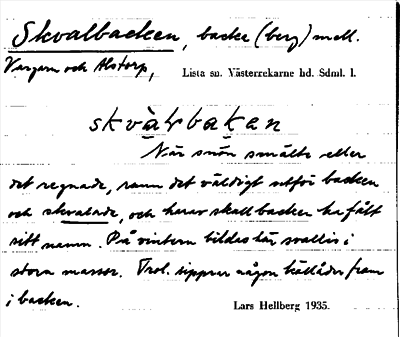 Skvalbacken, backe (berg) mell.
Vargarn och Alstorp, Lista sn. Västerrekarne hd. Sdml. l.
skvàlbaken
När snön smälte eller
det regnade, rann det väldigt utför backen
och skvalade, och härav skall backen ha fått
sitt namn. På vintern bildas här svallis i
stora massor. Trol. sipprar någon källåder fram
i backen. Lars Hellberg 1935.